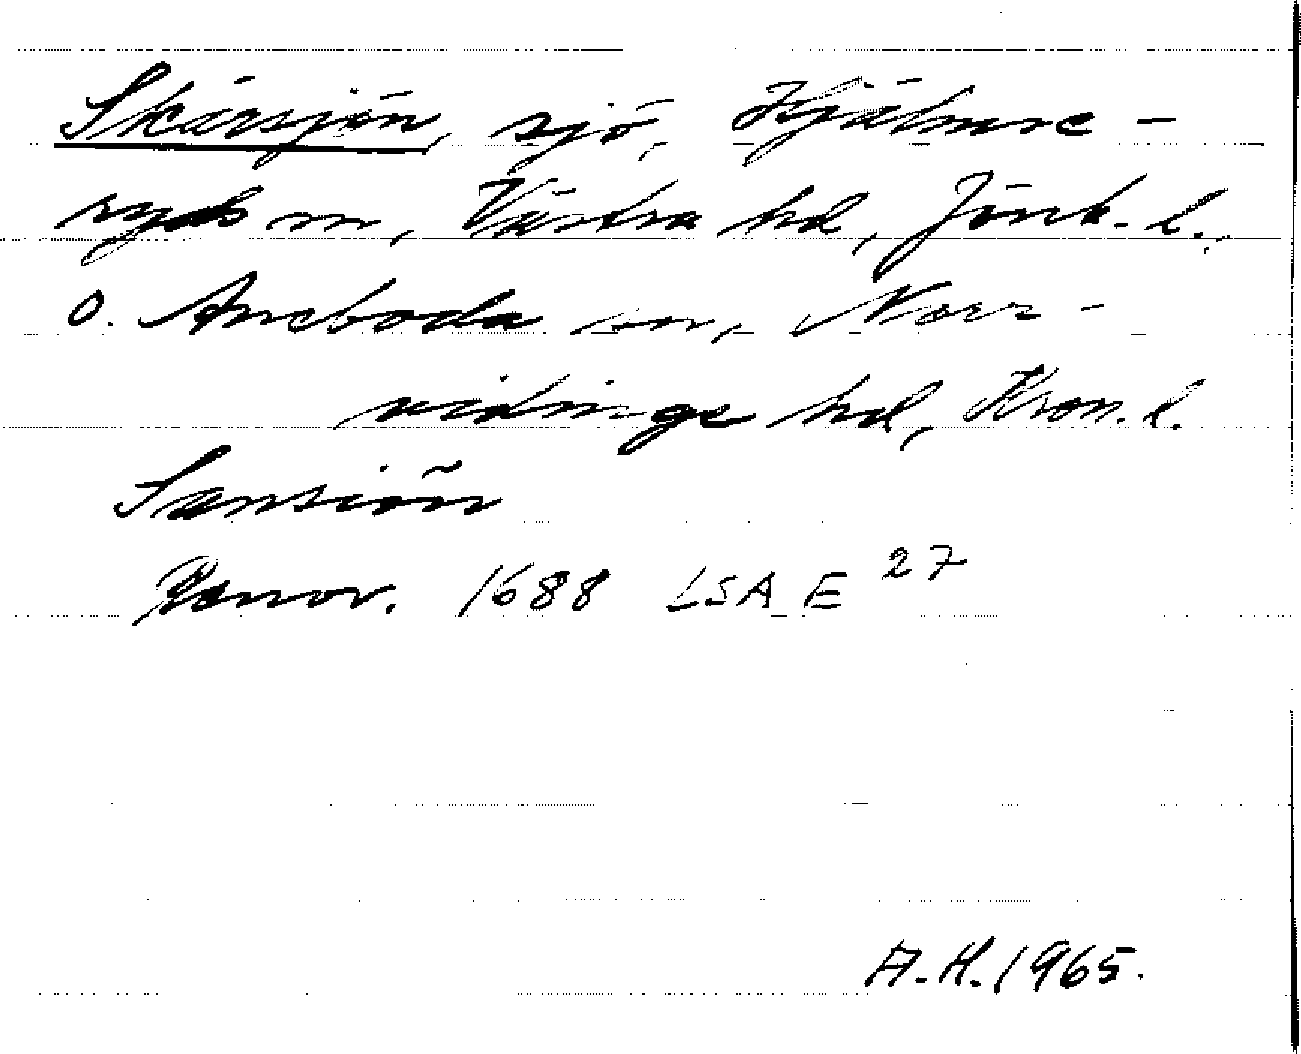 Skärsjön, sjö, Hjälmse-
ryds sn, Västra hd, Jönk. l.
o. Aneboda sn, Norr-
vidinge hd, Kron. l.
Sansiön
Renov. 1688 LSA E 27
A.H. 1965.